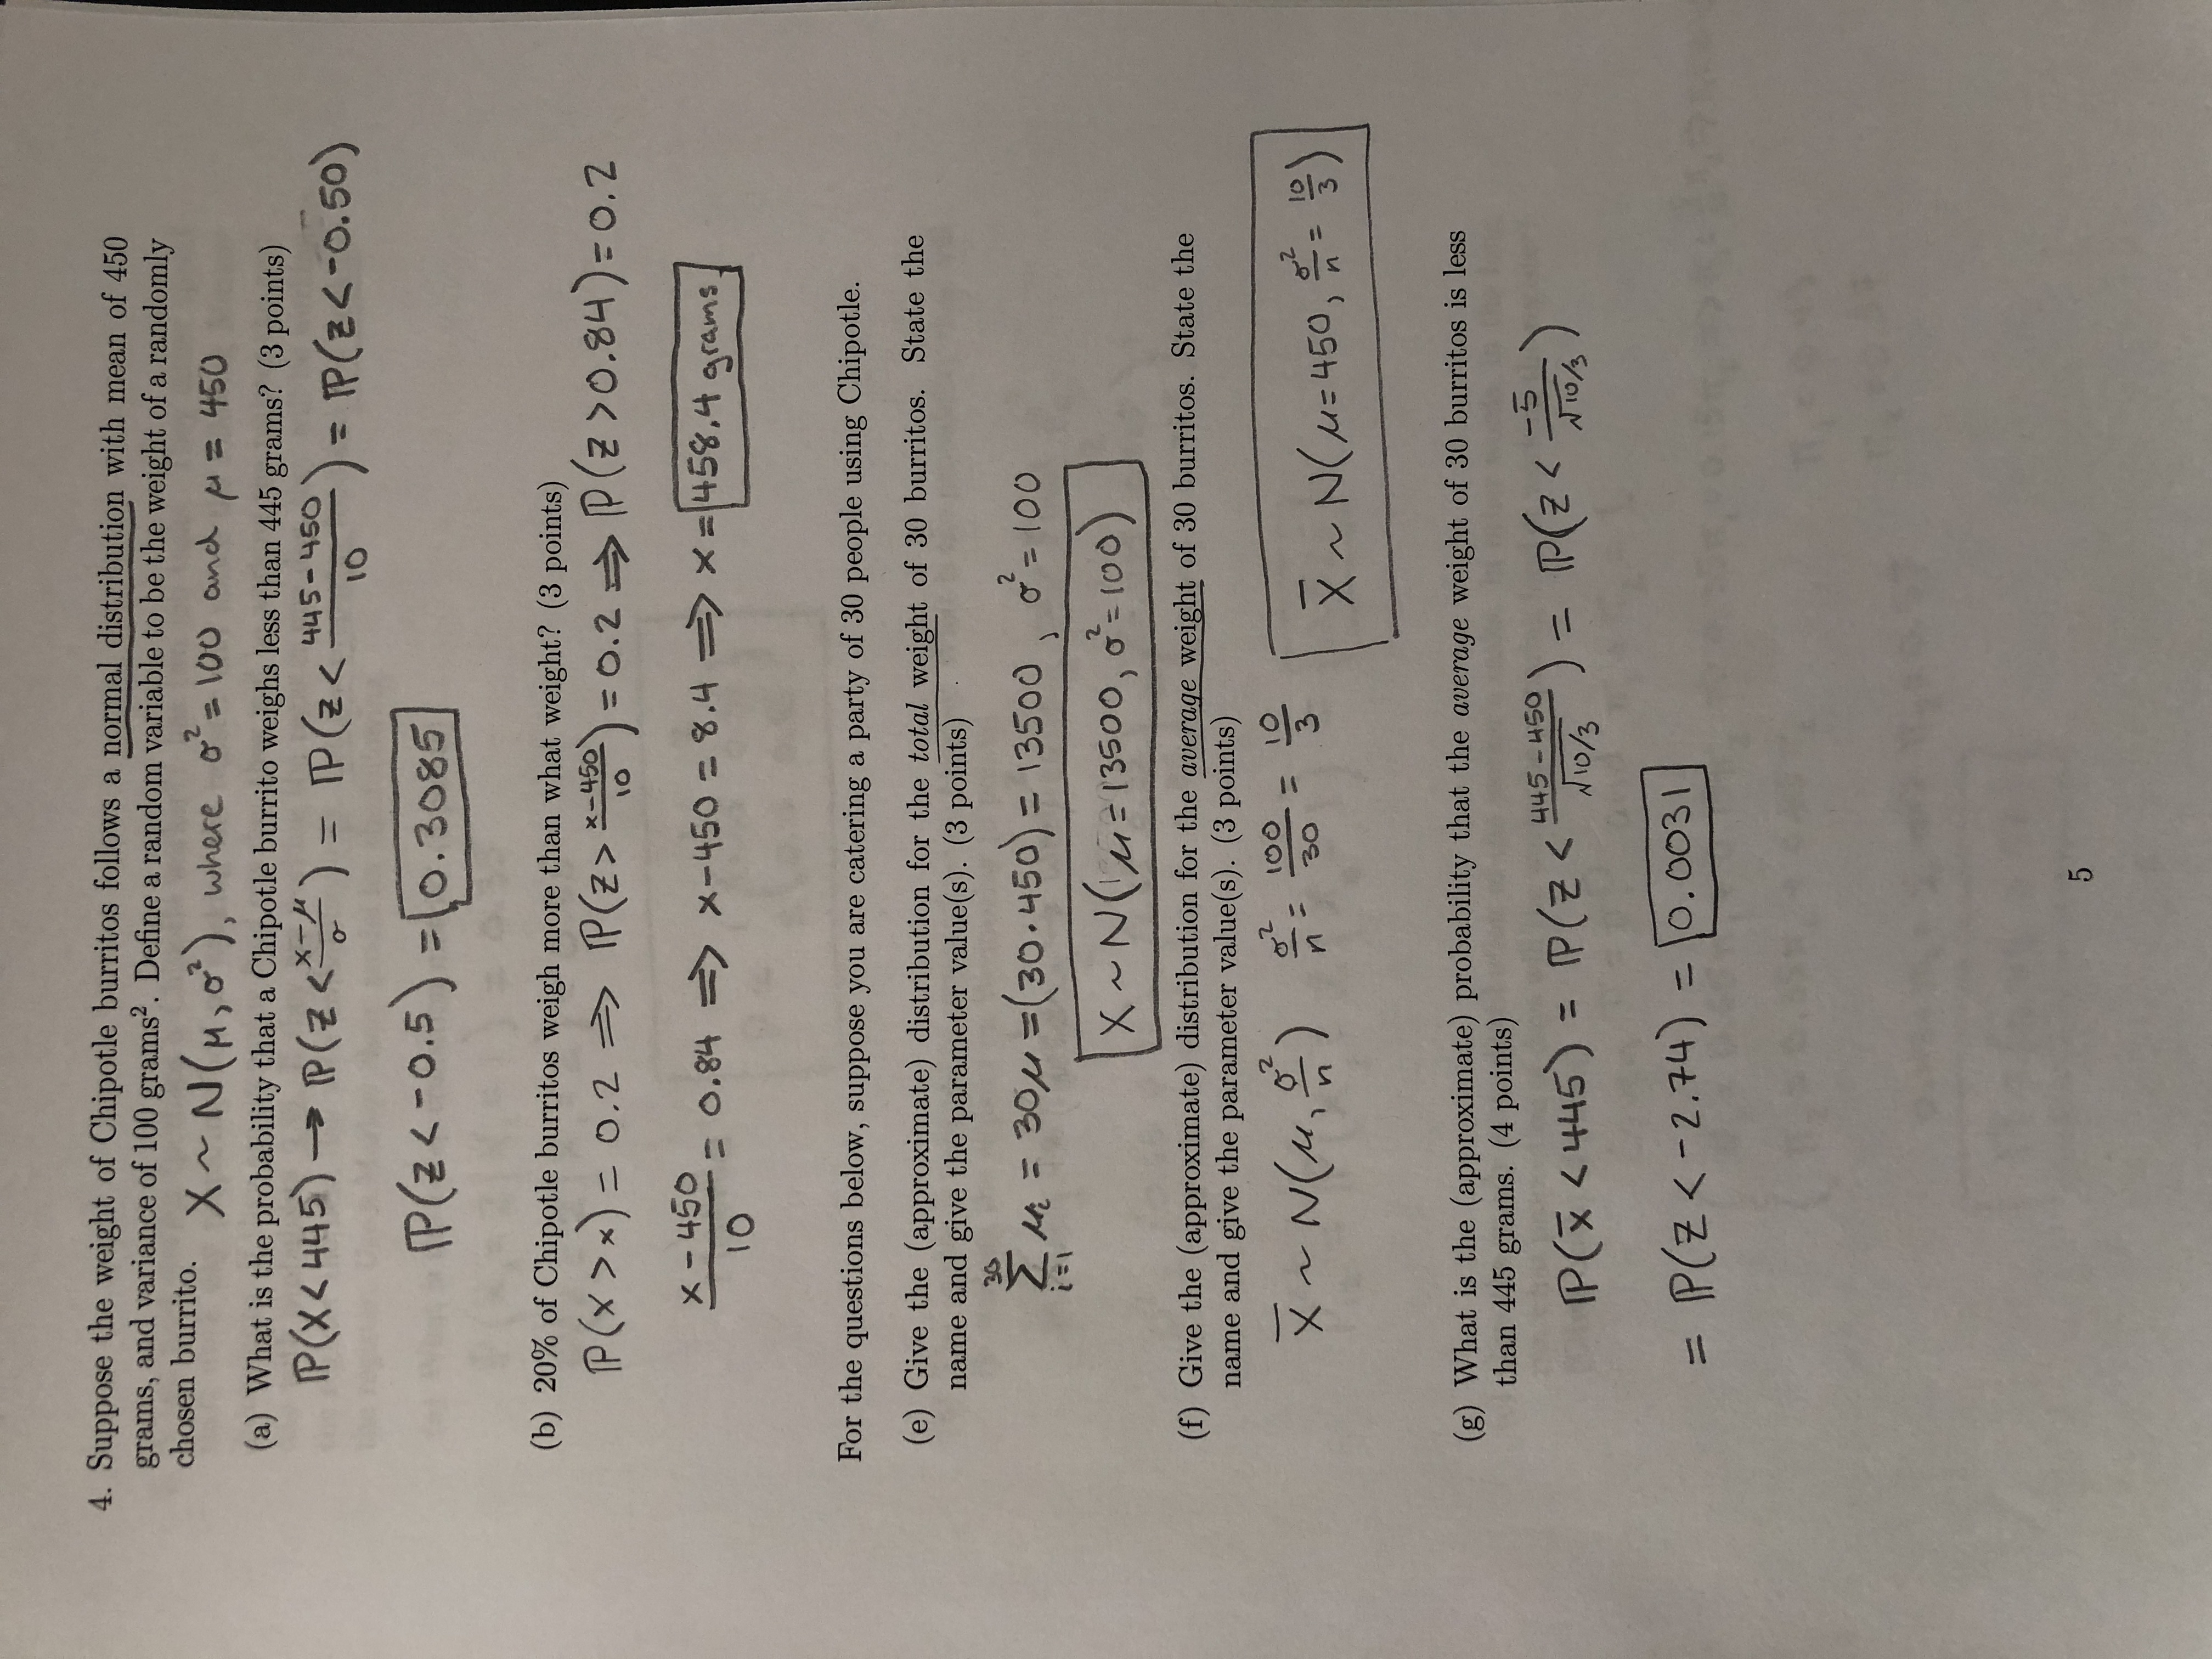 4. Suppose the weight of Chipotle burritos follows a normal distribution with mean of 450
grams, and variance of 100 grams². Define a random variable to be the weight of a randomly
chosen burrito.
X ~ N(μ, σ²), where σ² = 100 and μ = 450
(a) What is the probability that a Chipotle burrito weighs less than 445 grams? (3 points)
ℙ(X < 445) → ℙ(Z < (x-μ)/σ) = ℙ(Z < (445-450)/10) = ℙ(Z < -0.50)
ℙ(Z < -0.5) = 0.3085
(b) 20% of Chipotle burritos weigh more than what weight? (3 points)
ℙ(X > x) = 0.2 ⟹ ℙ(Z > (x-450)/10) = 0.2 ⟹ ℙ(Z > 0.84) = 0.2
(x-450)/10 = 0.84 ⟹ x-450 = 8.4 ⟹ x = 458.4 grams
For the questions below, suppose you are catering a party of 30 people using Chipotle.
(e) Give the (approximate) distribution for the total weight of 30 burritos. State the
name and give the parameter value(s). (3 points)
30 Σ i=1 μᵢ = 30μ = (30·450) = 13500, σ² = 100
X ~ N(μ = 13500, σ² = 100)
(f) Give the (approximate) distribution for the average weight of 30 burritos. State the
name and give the parameter value(s). (3 points)
X̄ ~ N(μ, σ²/n) σ²/n = 100/30 = 10/3 X̄ ~ N(μ = 450, σ²/n = 10/3)
(g) What is the (approximate) probability that the average weight of 30 burritos is less
than 445 grams. (4 points)
ℙ(x̄ < 445) = ℙ(Z < (445-450)/√10/3) = ℙ(Z < -5/√10/3)
= ℙ(Z < -2.74) = 0.0031
5